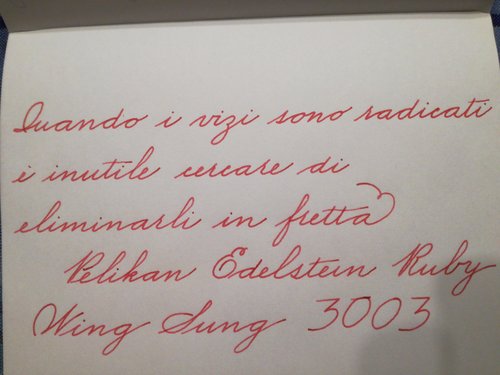 Quando i vizi sono radicati
è inutile cercare di
eliminarli in fretta
Pelikan Edelstein Ruby
Wing Sung 3003